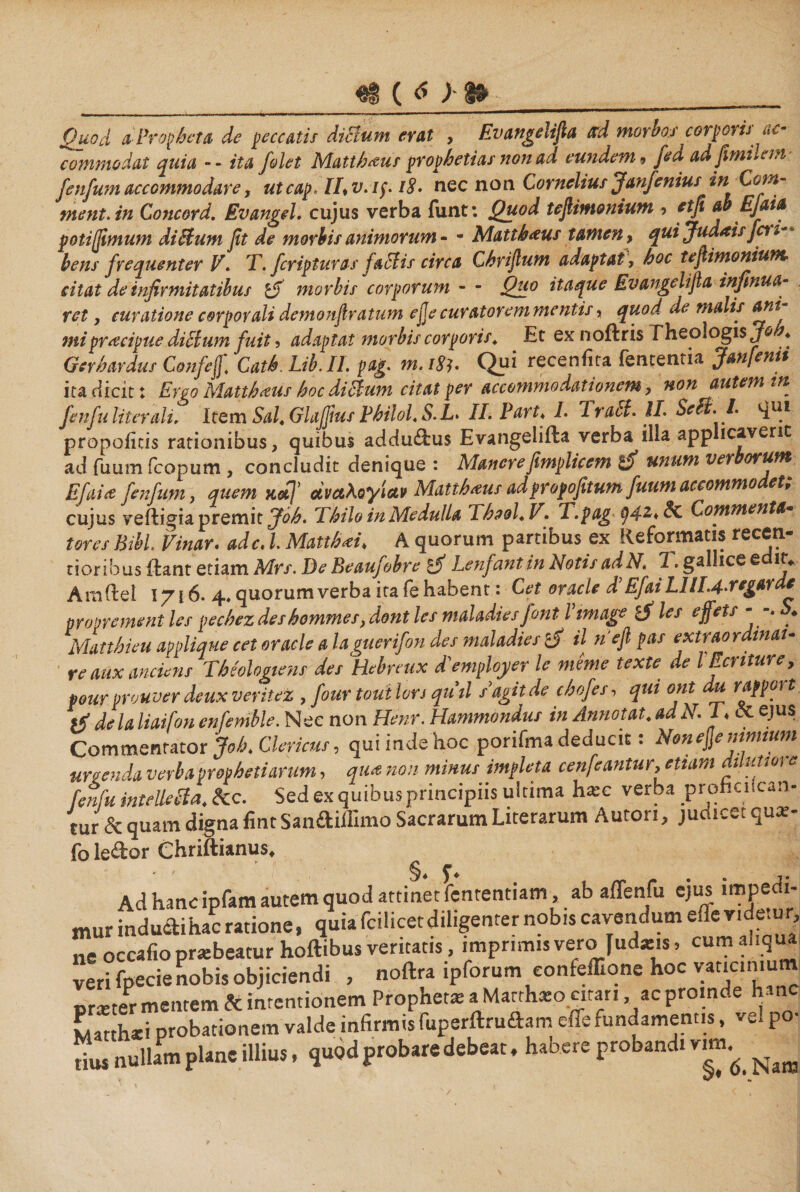 ( 6 )
Quod a Propheta de peccatis dictum erat , Evangelista ad morbos corporis ac-
commodat quia -- ita solet Matthæus prophetias non ad eundem, sed ad similem
sensum accommodare, ut cap. II. v. 15. 18. nec non Cornelius Jansenius in Com-
ment. in Concord. Evangel. cujus verba sunt: Quod testimonium , etsi ab Esaia
potissimum dictum sit de morbis animorum - - Matthæus tamen, qui Judæis scri-
bens frequenter V. T. scripturas factis circa Christum adaptat, hoc testimonium
citat de infirmitatibus & morbis corporum - - Quo itaque Evangelista insinua-
ret, curatione corporali demonstratum esse curatorem mentis, quod de malis ani-
mi præcipue dictum fuit, adaptat morbis corporis. Et ex nostris Theologis Joh.
Gerhardus Confess. Cath. Lib. II. pag. m. 183. Qui recensita sententia Jansenii
ita dicit: Ergo Matthæus hoc dictum citat per accommodationem, non autem in
sensu literali. Item Sal. Glassius Philol. S. L. II. Part. I. Tract. II. Sect. I. qui
propositis rationibus, quibus adductus Evangelista verba illa applicaverit
ad suum scopum , concludit denique : Manere simplicem & unum verborum
Esaiæ sensum, quem κατ' ἀναλογίαν Matthæus ad propositum suum accommodet;
cujus vestigia premit Joh. Thilo in Medulla Theol. V. T. pag. 942. & Commenta-
tores Bibl. Vinar. ad c. l. Matthæi. A quorum partibus ex Reformatis recen-
tioribus stant etiam Mrs. De Beausobre & Lenfant in Notis ad N. T. gallice edit.
Amstel 1716. 4. quorum verba ita se habent: Cet oracle d'Esai LIII.4. regarde
proprement les pechez des hommes, dont les maladies sont l'image & les effets - -. S.
Matthieu applique cet oracle a la guerison des maladies & il n'est pas extraordinai-
re aux anciens Théologiens des Hebreux d'employer le méme texte de l'Ecriture,
pour prouver deux veritez , sour tout lors qu'il s'agit de choses, qui ont du rapport
& de la liaison ensemble. Nec non Henr. Hammondus in Annotat. ad N. T. & ejus
Commentator Joh. Clericus, qui inde hoc porisma deducit: Non esse nimium
urgenda verba prophetiarum, quæ non minus impleta censeantur, etiam dilutiore
sensu intellecta. &c. Sed ex quibus principiis ultima hæc verba proficiscan-
tur & quam digna sint Sanctissimo Sacrarum Literarum Autori, judicet quæ-
so lector Christianus.
§. 5.
Ad hanc ipsam autem quod attinet sententiam, ab assensu ejus impedi-
mur inducti hac ratione, quia scilicet diligenter nobis cavendum esse videtur,
ne occasio præbeatur hostibus veritatis, imprimis vero Judæis, cum aliqua
veri specie nobis objiciendi , nostra ipsorum confessione hoc vaticinium
præter mentem & intentionem Prophetæ a Matthæo citari, ac proinde hanc
Matthæi probationem valde infirmis superstructam esse fundamentis, vel po-
tius nullam plane illius, quod probare debeat, habere probandi vim.
§. 6. Nam